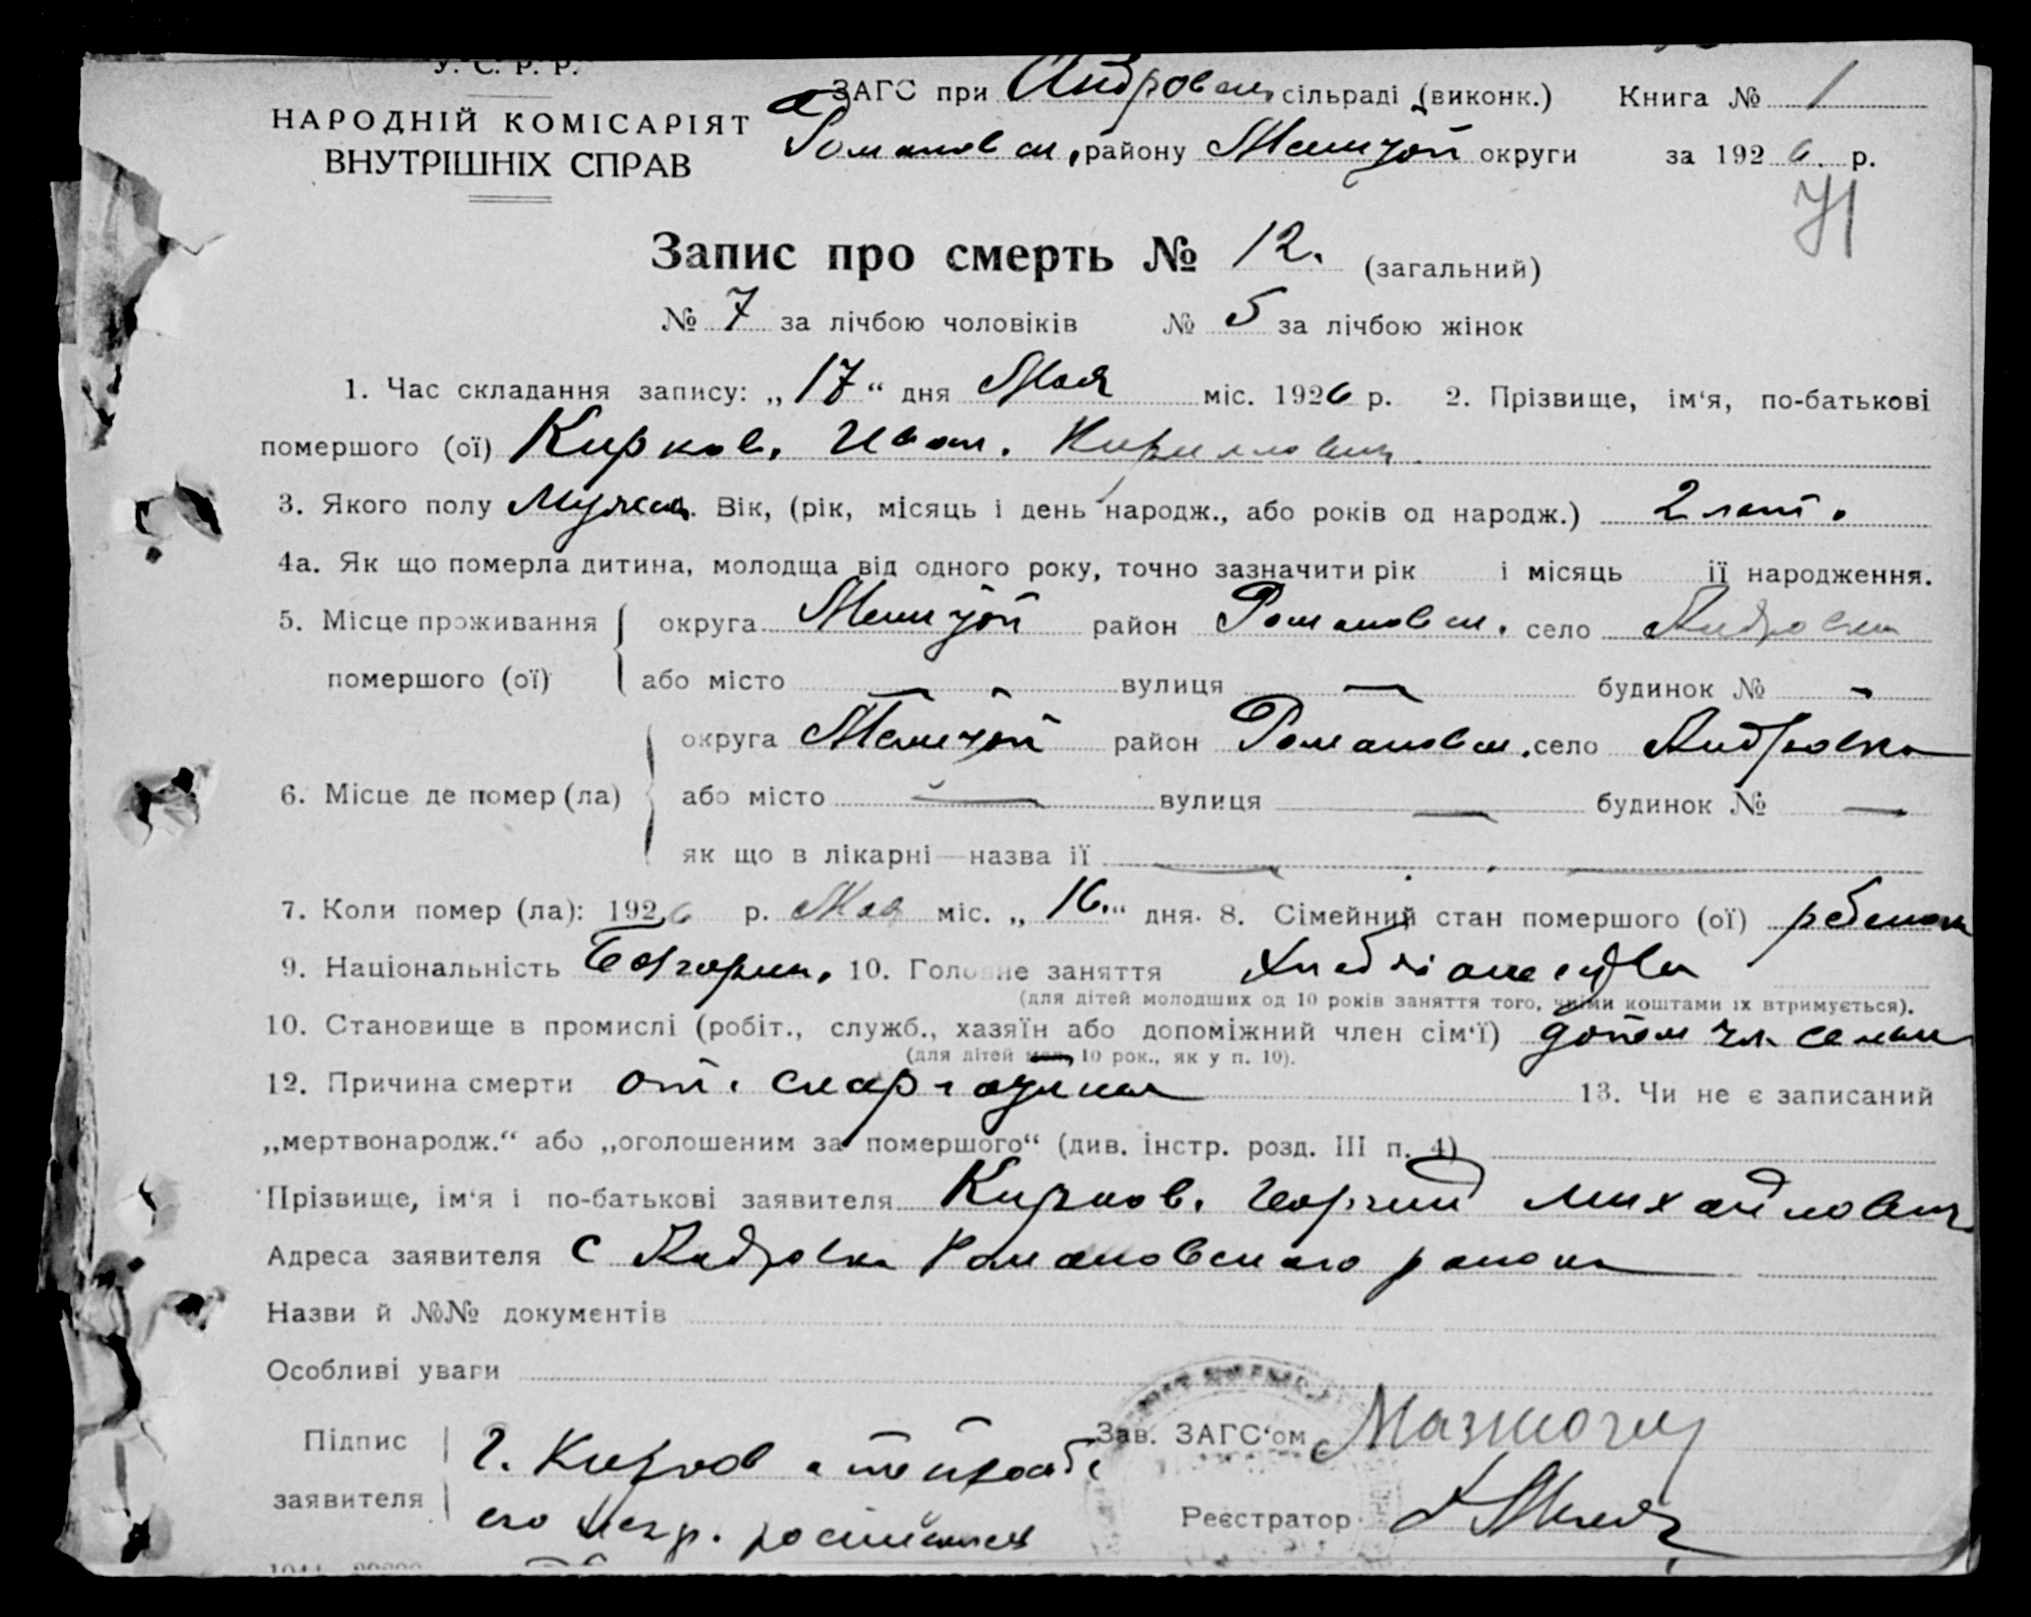 У. С. Р. Р.
НАРОДНІЙ КОМІСАРІЯТ
ВНУТРІШНІХ СПРАВ
ЗАГС при Андровск. сільраді (виконк.) Книга № 1
Романовск. району Мелитоп округи за 1926 р.
71
Запис про смерть № 12. (загальний)
№ 7 за лічбою чоловіків № 5 за лічбою жінок
1. Час складання запису: „17“ дня Мая міс. 1926 р. 2. Прізвище, ім‘я, по-батькові
помершого (ої) Кирков. Иван. Кириллович
3. Якого полу Мужск. Вік, (рік, місяць і день народж., або років од народж.) 2 лет.
4а. Як що померла дитина, молодща від одного року, точно зазначити рік і місяць її народження.
5. Місце проживання помершого (ої) округа Мелитоп район Романовск. село Андровка
або місто вулиця — будинок № -
6. Місце де помер (ла) округа Мелитоп район Романовск. село Андровка
або місто — вулиця — будинок № —
як що в лікарні—назва її —
7. Коли помер (ла): 1926 р. Мая міс. „16.“ дня. 8. Сімейний стан помершого (ої) ребенок
9. Національність Болгарин. 10. Головне заняття Хлебопашество
(для дітей молодших од 10 років заняття того, чиїми коштами їх втримується).
10. Становище в промислі (робіт., служб., хазяїн або допоміжний член сім‘ї) допом чл. семьи
(для дітей мол. 10 рок., як у п. 10).
12. Причина смерти от. скарлатины 13. Чи не є записаний
„мертвонародж.“ або „оголошеним за помершого“ (див. інстр. розд. III п. 4)
Прізвище, ім‘я і по-батькові заявителя Кирков. Георгий Михайлович
Адреса заявителя с Андровка Романовского района
Назви й №№ документів
Особливі уваги
Підпис заявителя Г. Кирков
его негр. росписался
Зав. ЗАГС‘ом
Реєстратор